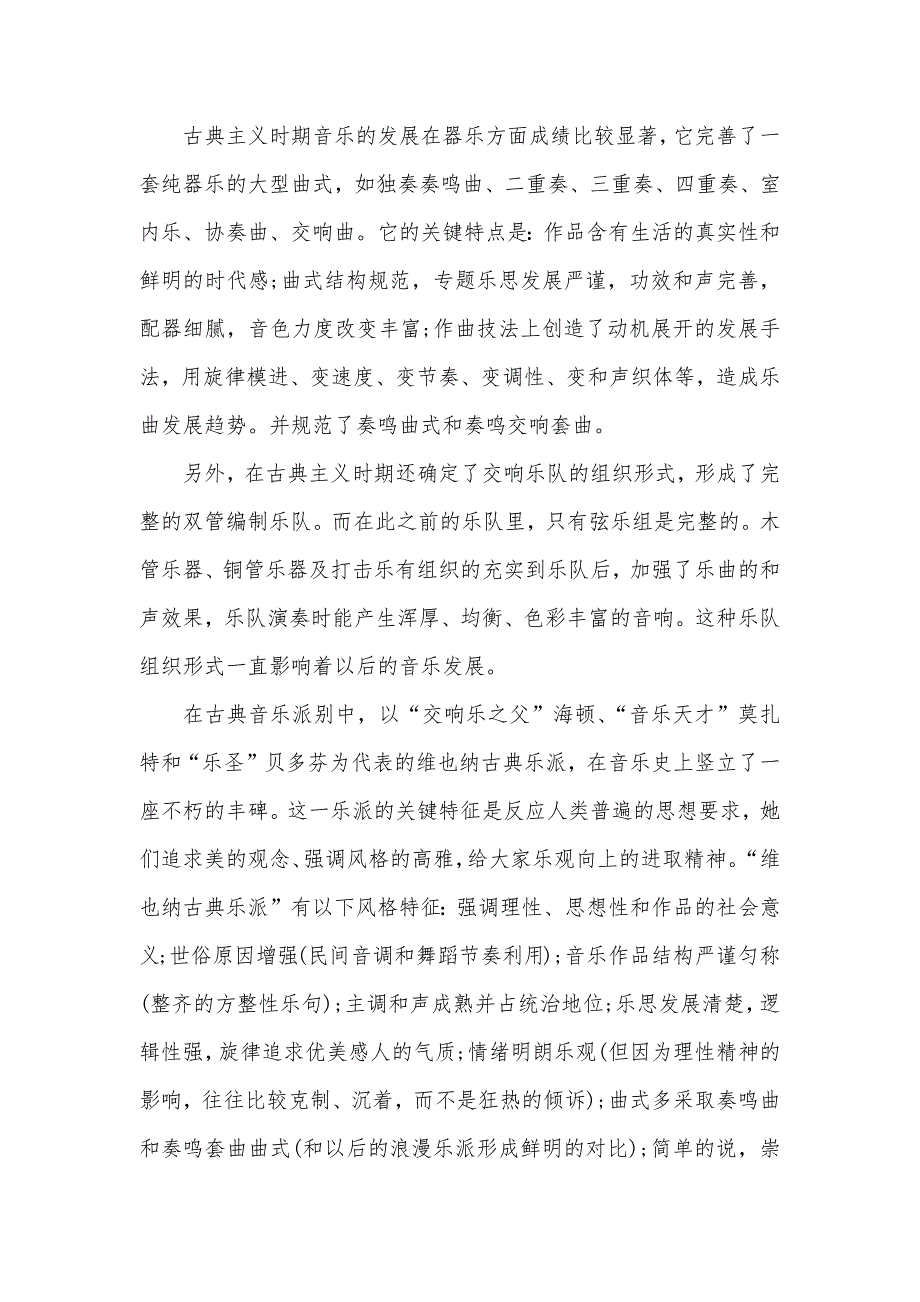 古典主义时期音乐的发展在器乐方面成绩比较显著，它完善了一
套纯器乐的大型曲式，如独奏奏鸣曲、二重奏、三重奏、四重奏、室
内乐、协奏曲、交响曲。它的关键特点是：作品含有生活的真实性和
鲜明的时代感;曲式结构规范，专题乐思发展严谨，功效和声完善，
配器细腻，音色力度改变丰富;作曲技法上创造了动机展开的发展手
法，用旋律模进、变速度、变节奏、变调性、变和声织体等，造成乐
曲发展趋势。并规范了奏鸣曲式和奏鸣交响套曲。
另外，在古典主义时期还确定了交响乐队的组织形式，形成了完
整的双管编制乐队。而在此之前的乐队里，只有弦乐组是完整的。木
管乐器、铜管乐器及打击乐有组织的充实到乐队后，加强了乐曲的和
声效果，乐队演奏时能产生浑厚、均衡、色彩丰富的音响。这种乐队
组织形式一直影响着以后的音乐发展。
在古典音乐派别中，以“交响乐之父”海顿、“音乐天才”莫扎
特和“乐圣”贝多芬为代表的维也纳古典乐派，在音乐史上竖立了一
座不朽的丰碑。这一乐派的关键特征是反应人类普遍的思想要求，她
们追求美的观念、强调风格的高雅，给大家乐观向上的进取精神。“维
也纳古典乐派”有以下风格特征：强调理性、思想性和作品的社会意
义;世俗原因增强(民间音调和舞蹈节奏利用);音乐作品结构严谨匀称
(整齐的方整性乐句);主调和声成熟并占统治地位;乐思发展清楚，逻
辑性强，旋律追求优美感人的气质;情绪明朗乐观(但因为理性精神的
影响，往往比较克制、沉着，而不是狂热的倾诉);曲式多采取奏鸣曲
和奏鸣套曲曲式(和以后的浪漫乐派形成鲜明的对比);简单的说，崇